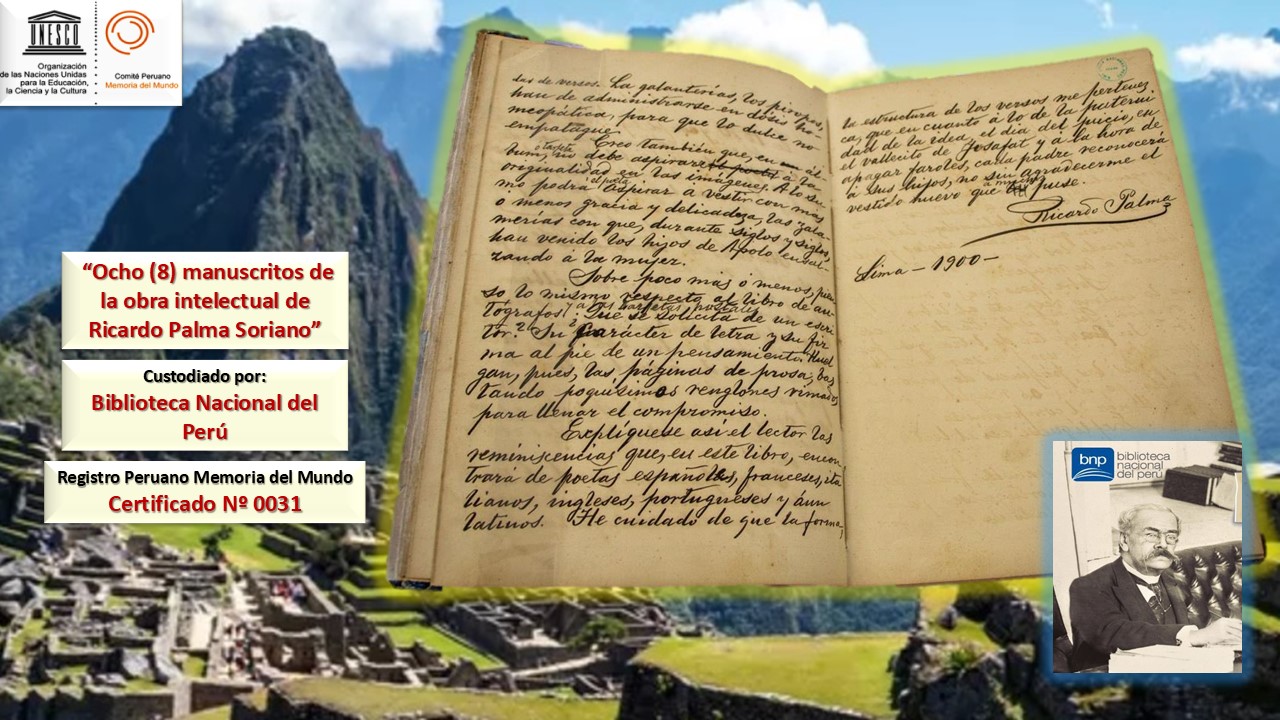 UNESCO
Organización
de las Naciones Unidas
para la Educación,
la Ciencia y la Cultura
Comité Peruano
Memoria del Mundo
“Ocho (8) manuscritos de
la obra intelectual de
Ricardo Palma Soriano”
Custodiado por:
Biblioteca Nacional del
Perú
Registro Peruano Memoria del Mundo
Certificado Nº 0031
das de versos. La galanterias, los piropos,
han de administrarse en dosis ho-
meopática, para que lo dulce no
empalague.
Creo también que, en un ál-
bum, no debe aspirar el poeta á la
originalidad en las imágenes. A lo su-
mo podrá aspirar á vestir con más
o menos gracia y delicadeza, las gala-
nerías con que, durante siglos y siglos,
han venido los hijos de Apolo ensal-
zando á la mujer.
Sobre poco más ó menos, pien
so lo mismo respecto al libro de au-
tógrafos y á las tarjetas postales
¿Que se solicita de un escri
tor? Su carácter de letra y su fir
ma al pie de un pensamiento. Huel
gan, pues, las páginas de prosa, bas
tando poquísimos renglones rimados
para llenar el compromiso.
Explíquese así el lector las
reminiscencias que, en este libro, encon
trará de poetas españoles, franceses, ita
lianos, ingleses, portugueses y áun
latinos. He cuidado de que la forma,
la estructura de los versos me pertenez
ca, que en cuanto á lo de la paterni
dad de la idea, el día del juicio, en
el vallecito de Josafat y á la hora de
apagar faroles, cada padre reconocerá
á sus hijos, no sin agradecerme el
vestido nuevo que les puse.
Ricardo Palma
Lima – 1900 –
bnp
biblioteca
nacional
del perú